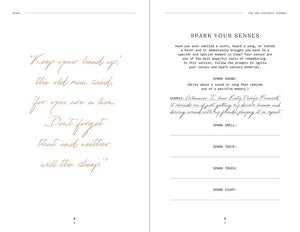 SPARK
"Keep your head up,"
the old man said,
for you are a lion.
Don't forget
that and neither
will the sheep."
SPARK YOUR SENSES
Have you ever smelled a scent, heard a song, or tasted
a flavor and it immediately brought you back to a
specific and special moment in time? Your senses are
one of the most powerful tools of remembering.
In this section, follow the prompts to ignite
your senses and spark sensory memories.
SPARK SOUND:
(Write about a sound or song that reminds
you of a positive memory.)
EXAMPLE: Whenever I hear
it reminds me of just getting my
driving around with my friends
SPARK SMELL:
SPARK TASTE:
SPARK TOUCH:
SPARK SIGHT: